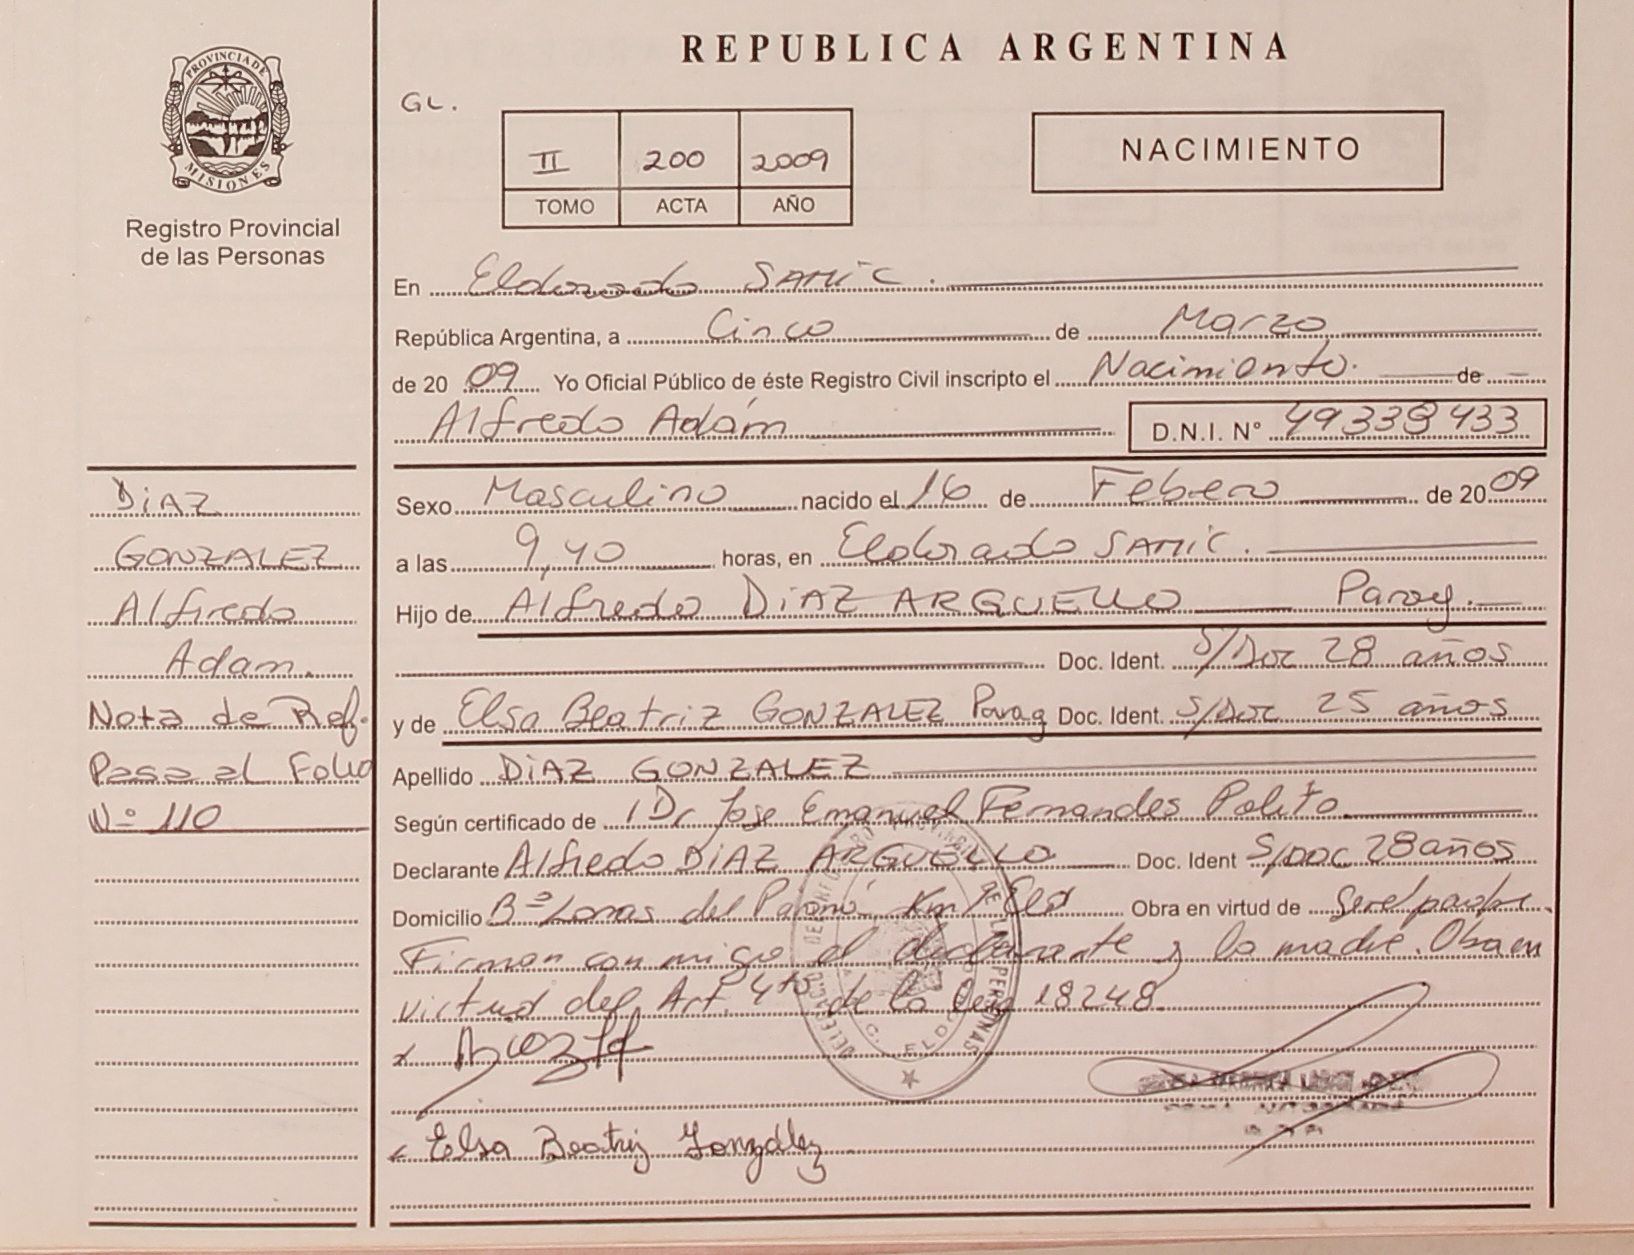 PROVINCIA DE
MISIONES
Registro Provincial
de las Personas
REPUBLICA ARGENTINA
GL.
II 200 2009
TOMO ACTA AÑO
NACIMIENTO
En Eldorado SAMIC.
República Argentina, a Cinco de Marzo
de 20 09 Yo Oficial Público de éste Registro Civil inscripto el Nacimiento. de
Alfredo Adám D.N.I. N° 49338433
DiAZ
GONZALEZ
Alfredo
Adam.
Nota de Ref.
Pasa al Folio
N° 110
Sexo Masculino nacido el 16 de Febrero de 20 09
a las 9,40 horas, en Eldorado SAMIC.
Hijo de Alfredo DiAZ ARGUELLO Paray.
Doc. Ident. S/Doc 28 años
y de Elsa Beatriz GONZALEZ Parag Doc. Ident. S/Doc 25 años
Apellido DiAZ GONZALEZ
Según certificado de Dr Jose Emanuel Fernandes Polito
Declarante Alfredo DiAZ ARGUELLO Doc. Ident S/DOC 28 años
Domicilio B° Lomas del Paraná, Km Eldo Obra en virtud de Ser el padre.
Firman con migo el declarante y la madre. Obra en
virtud del Art. 4to de la Ley 18248.
Elsa Beatriz González